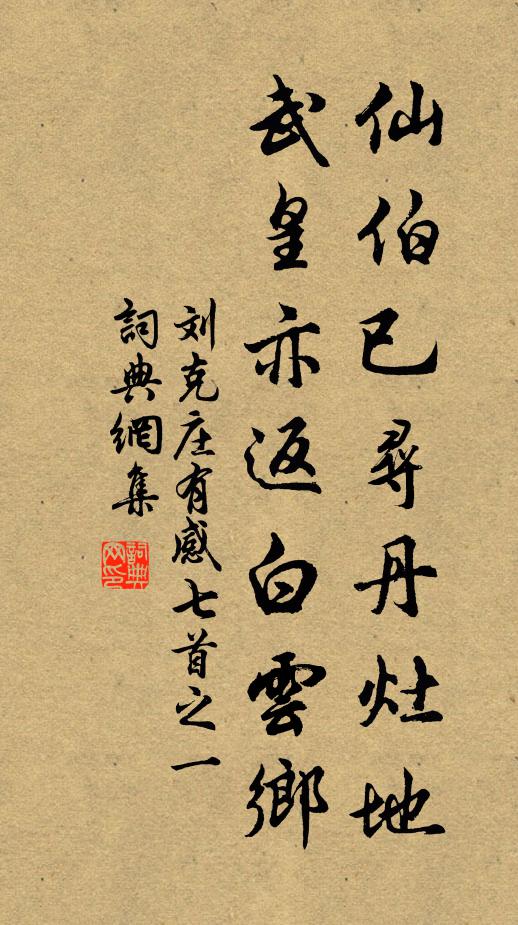 仙伯已尋丹灶地
武皇亦返白雲鄉
刘克庄有感七首之一
詞典網集
詞典網印